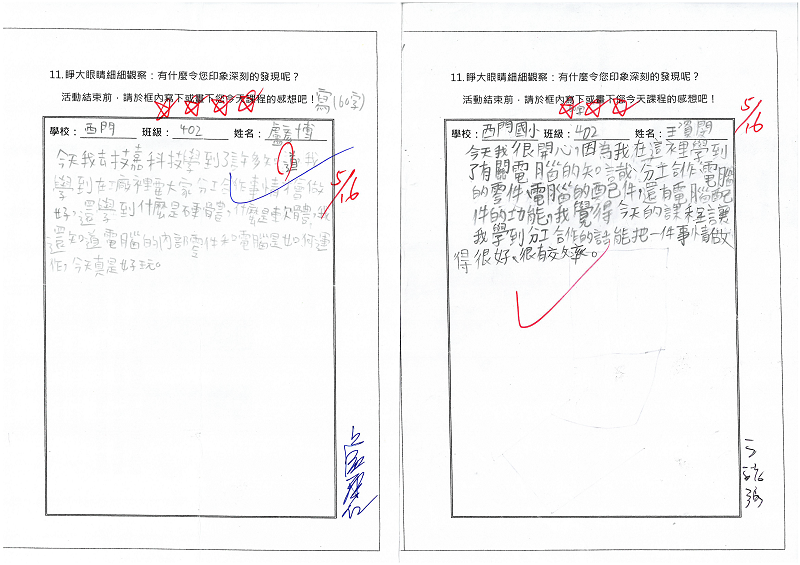 11.睜大眼睛細細觀察：有什麼令您印象深刻的發現呢？
活動結束前，請於框內寫下或畫下您今天課程的感想吧！
寫(60字)
學校：西門 班級：402 姓名：盧彥博
今天我去技嘉科技學到了許多知道，我
學到在電腦裡大家分工合作事情會做
好，還學到什麼是硬體，什麼是軟體，我
還知道電腦的內部零件和電腦是如何運
作，今天真是好玩。
5/16
11.睜大眼睛細細觀察：有什麼令您印象深刻的發現呢？
活動結束前，請於框內寫下或畫下您今天課程的感想吧！
學校：西門國小 班級：402 姓名：王
今天我很開心，因為我在這裡學到
了有關電腦的知識、分工合作、電腦
的零件、電腦的配件，還有電腦配
件的功能，我覺得今天的課程讓
我學到分工合作的話能把一件事情做
得很好、很有效率。
5/16